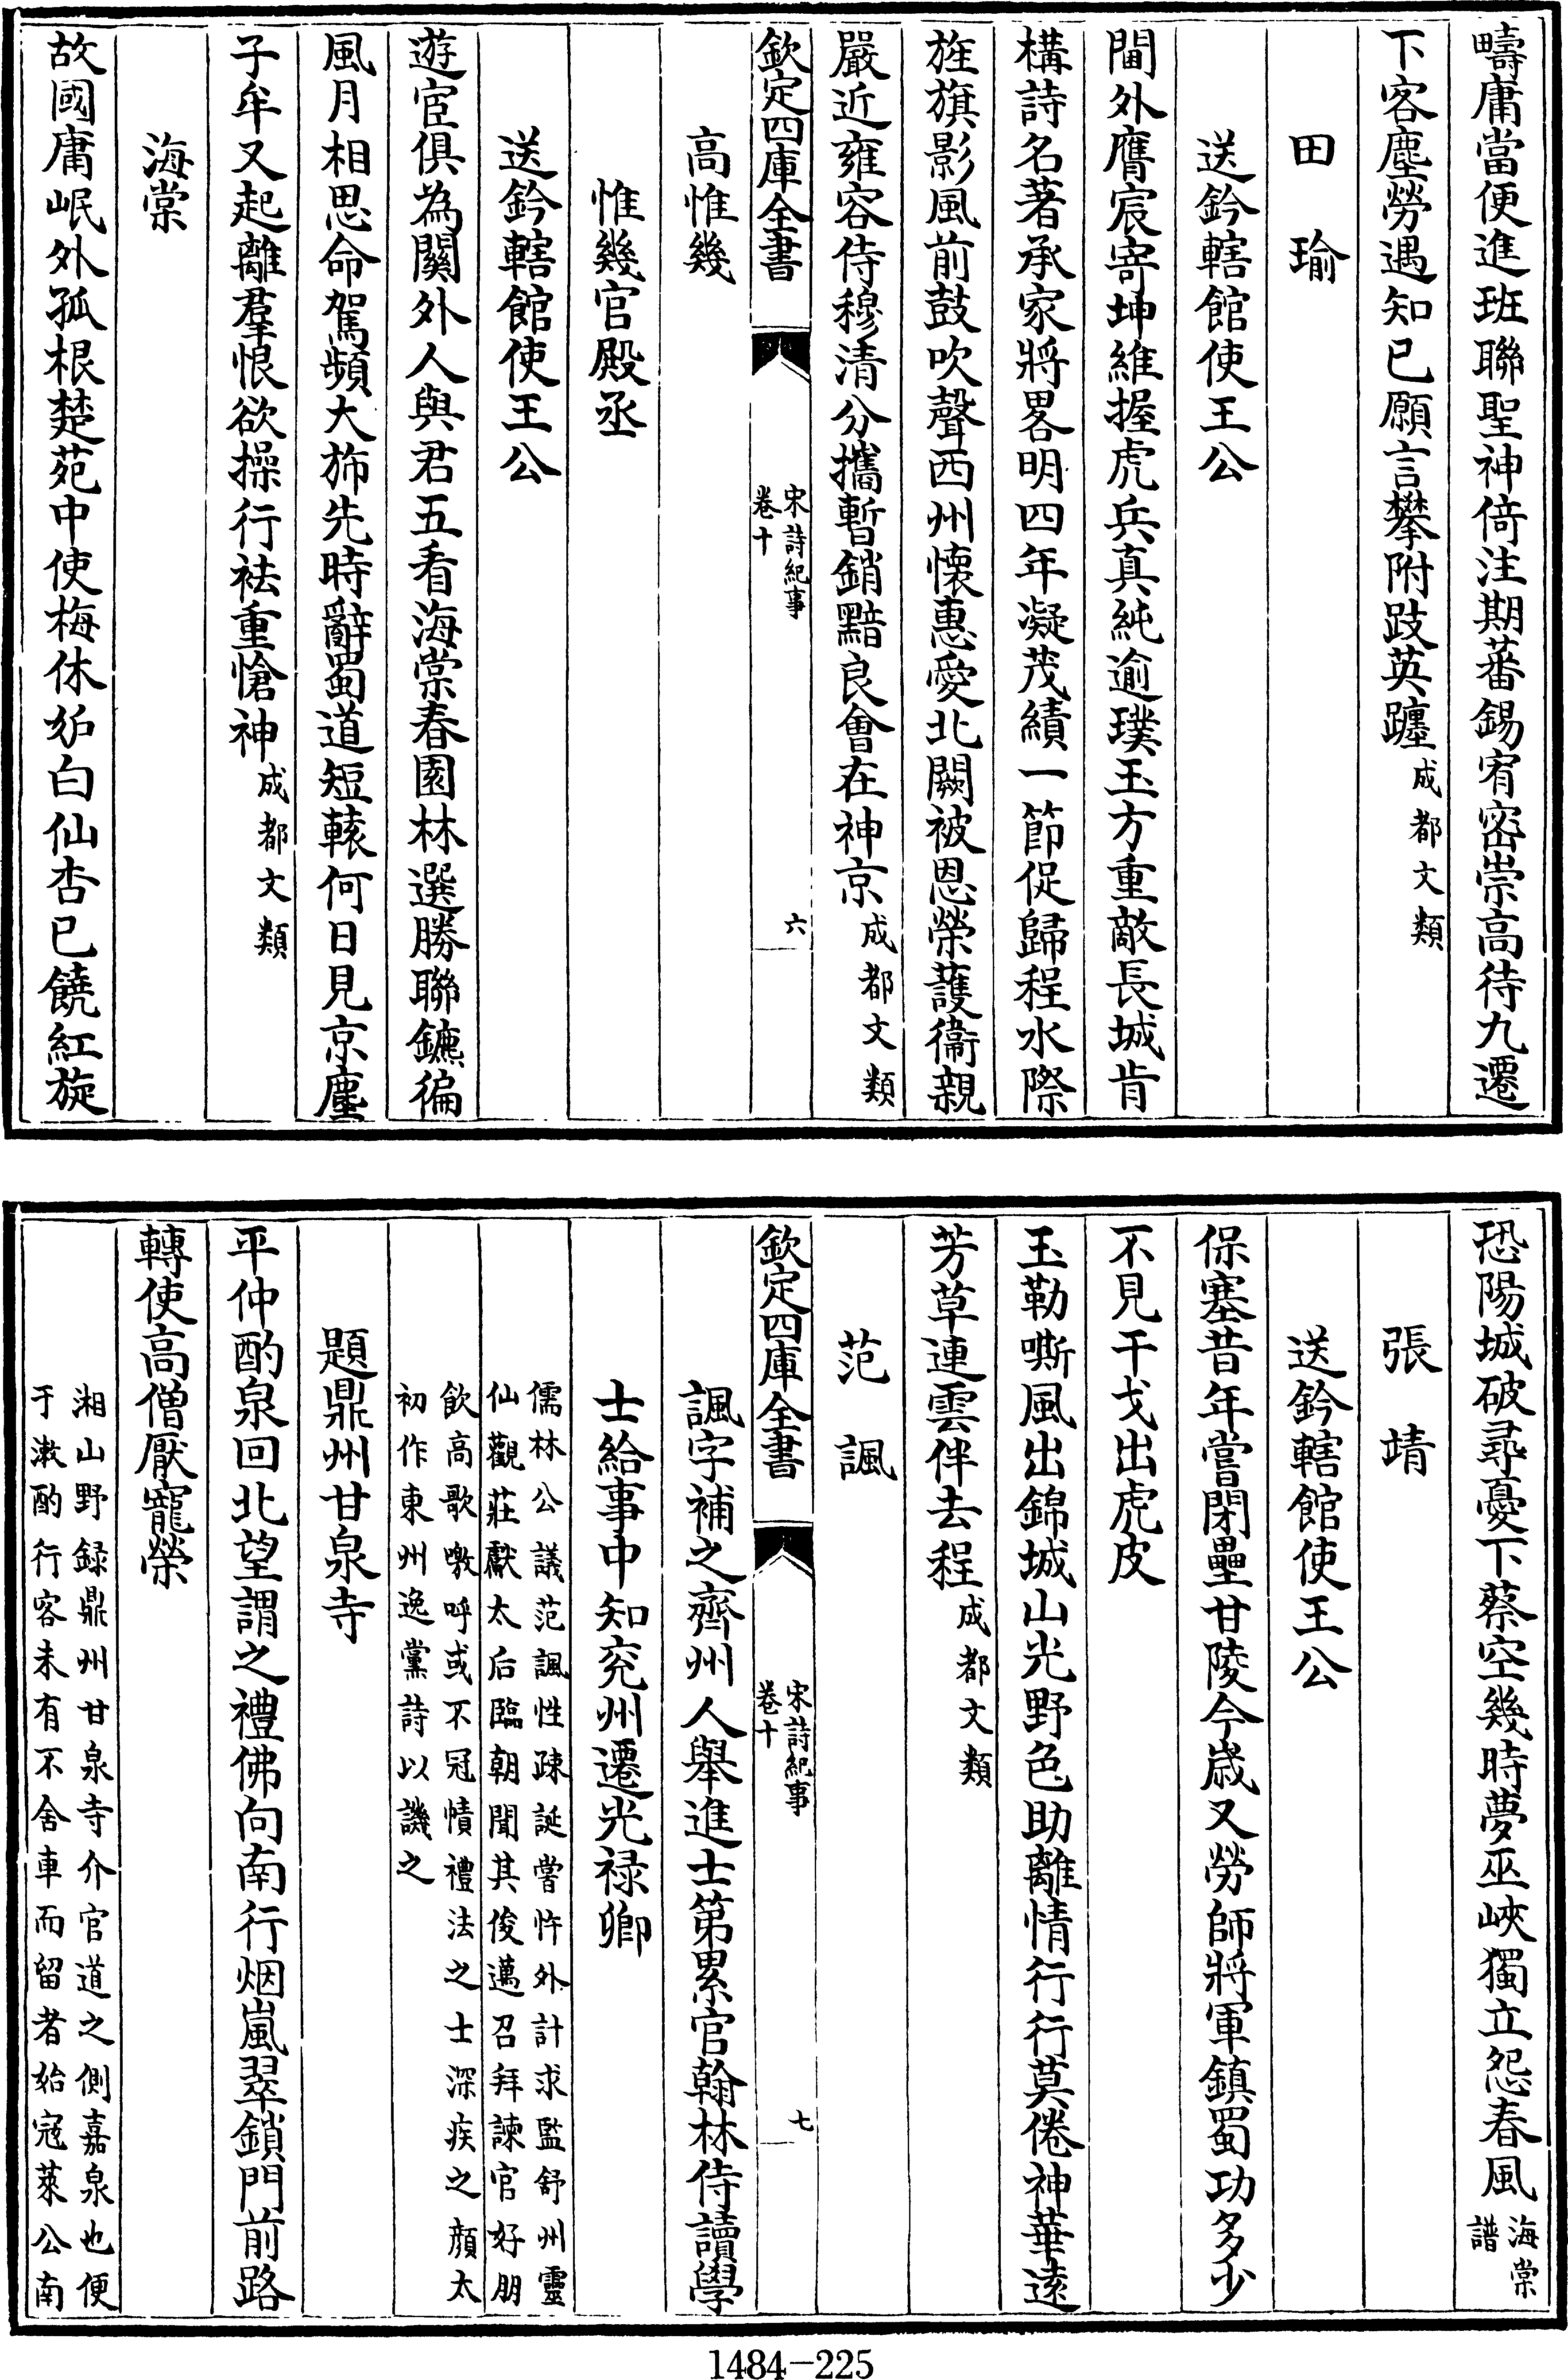 疇庸當便進班聯聖神倚注期蕃錫宥密崇高待九遷
下客塵勞遇知已願言攀附跂英躔成都文類
田瑜
送鈐轄館使王公
閫外膺宸寄坤維握虎兵真純逾璞玉方重敵長城肯
構詩名著承家將畧明四年凝茂績一節促歸程水際
旌旗影風前鼓吹聲西州懷惠愛北闕被恩榮䕶衞親
嚴近雍容侍穆清分攜暫銷黯良會在神京成都文類
欽定四庫全書
宋詩紀事
卷十
六
高惟幾
惟幾官殿丞
送鈐轄館使王公
遊宦俱為關外人與君五看海棠春園林選勝聯鑣徧
風月相思命駕頻大斾先時辭蜀道短轅何日見京塵
子牟又起離羣恨欲操行袪重愴神成都文類
海棠
故國庸岷外孤根楚苑中使梅休妒白仙杏已饒紅旋
恐陽城破尋憂下蔡空幾時夢巫峽獨立怨春風海棠
譜
張靖
送鈐轄館使王公
保塞昔年嘗閉壘甘陵今歲又勞師將軍鎮蜀功多少
不見干戈出虎皮
玉勒嘶風出錦城山光野色助離情行行莫倦神華遠
芳草連雲伴去程成都文類
范諷
欽定四庫全書
宋詩紀事
卷十
七
諷字補之齊州人舉進士第累官翰林侍讀學
士給事中知兖州遷光禄卿
儒林公議范諷性疎誕嘗忤外計求監舒州靈
仙觀莊獻太后臨朝聞其俊邁召拜諫官好朋
飲高歌嗷呼或不冠幘禮法之士深疾之顔太
初作東州逸黨詩以譏之
題鼎州甘泉寺
平仲酌泉回北望謂之禮佛向南行烟嵐翠鎖門前路
轉使高僧厭寵榮
湘山野録鼎州甘泉寺介官道之側嘉泉也便
于漱酌行客未有不舍車而留者始冦萊公南
1484-225